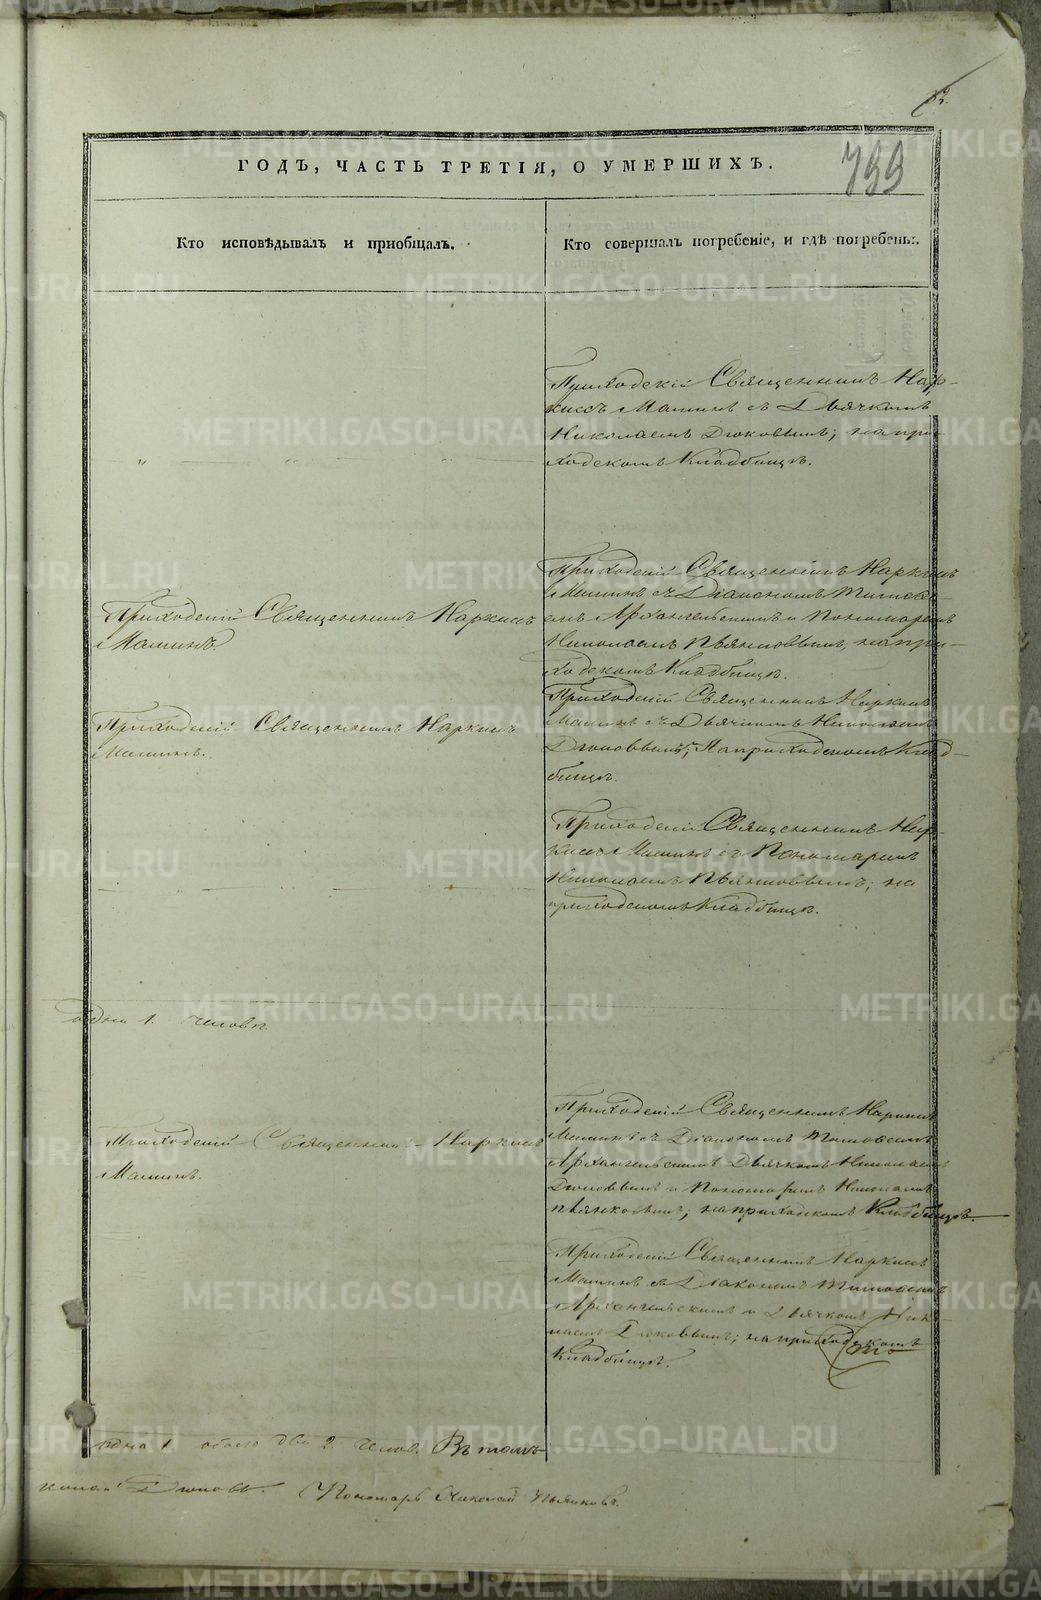 799
ГОДЪ, ЧАСТЬ ТРЕТІЯ, О УМЕРШИХЪ.
Кто исповѣдывалъ и пріобщалъ.
Кто совершалъ погребеніе, и гдѣ погребены.
Приходскій Священникъ Нар-
киссъ Маминъ съ Дьячкомъ
Николаемъ Дюковымъ; на при-
ходскомъ Кладбищѣ.
Приходскій Священникъ Наркиссъ
Маминъ
Приходскій Священникъ Наркиссъ
Маминъ съ Діакономъ Тимофе-
емъ Архангельскимъ и Пономаремъ
Николаемъ Пьянковымъ, на при-
ходскомъ Кладбищѣ.
Приходскій Священникъ Наркиссъ
Маминъ.
Приходскій Священникъ Наркиссъ
Маминъ съ Дьячкомъ Николаемъ
Дюковымъ; На приходскомъ Клад-
бищѣ.
Приходскій Священникъ Нар-
киссъ Маминъ съ Пономаремъ
Николаемъ Пьянковымъ; на
приходскомъ Кладбищѣ.
одна 1. человѣкъ
Приходскій Священникъ Наркиссъ
Маминъ.
Приходскій Священникъ Наркиссъ
Маминъ съ Діакономъ Тимофеемъ
Архангельскимъ Дьячкомъ Николаемъ
Дюковымъ и Пономаремъ Николаемъ
Пьянковымъ; на приходскомъ Кладбищѣ.
Приходскій Священникъ Наркиссъ
Маминъ съ Діакономъ Тимофеемъ
Архангельскимъ и Дьячкомъ Нико-
лаемъ Дюковымъ; на приходскомъ
Кладбищѣ.
одна 1 обоего два 2 челов. Въ томъ
Дюковъ. Пономарь Николай Пьянковъ.
METRIKI.GASO-URAL.RU